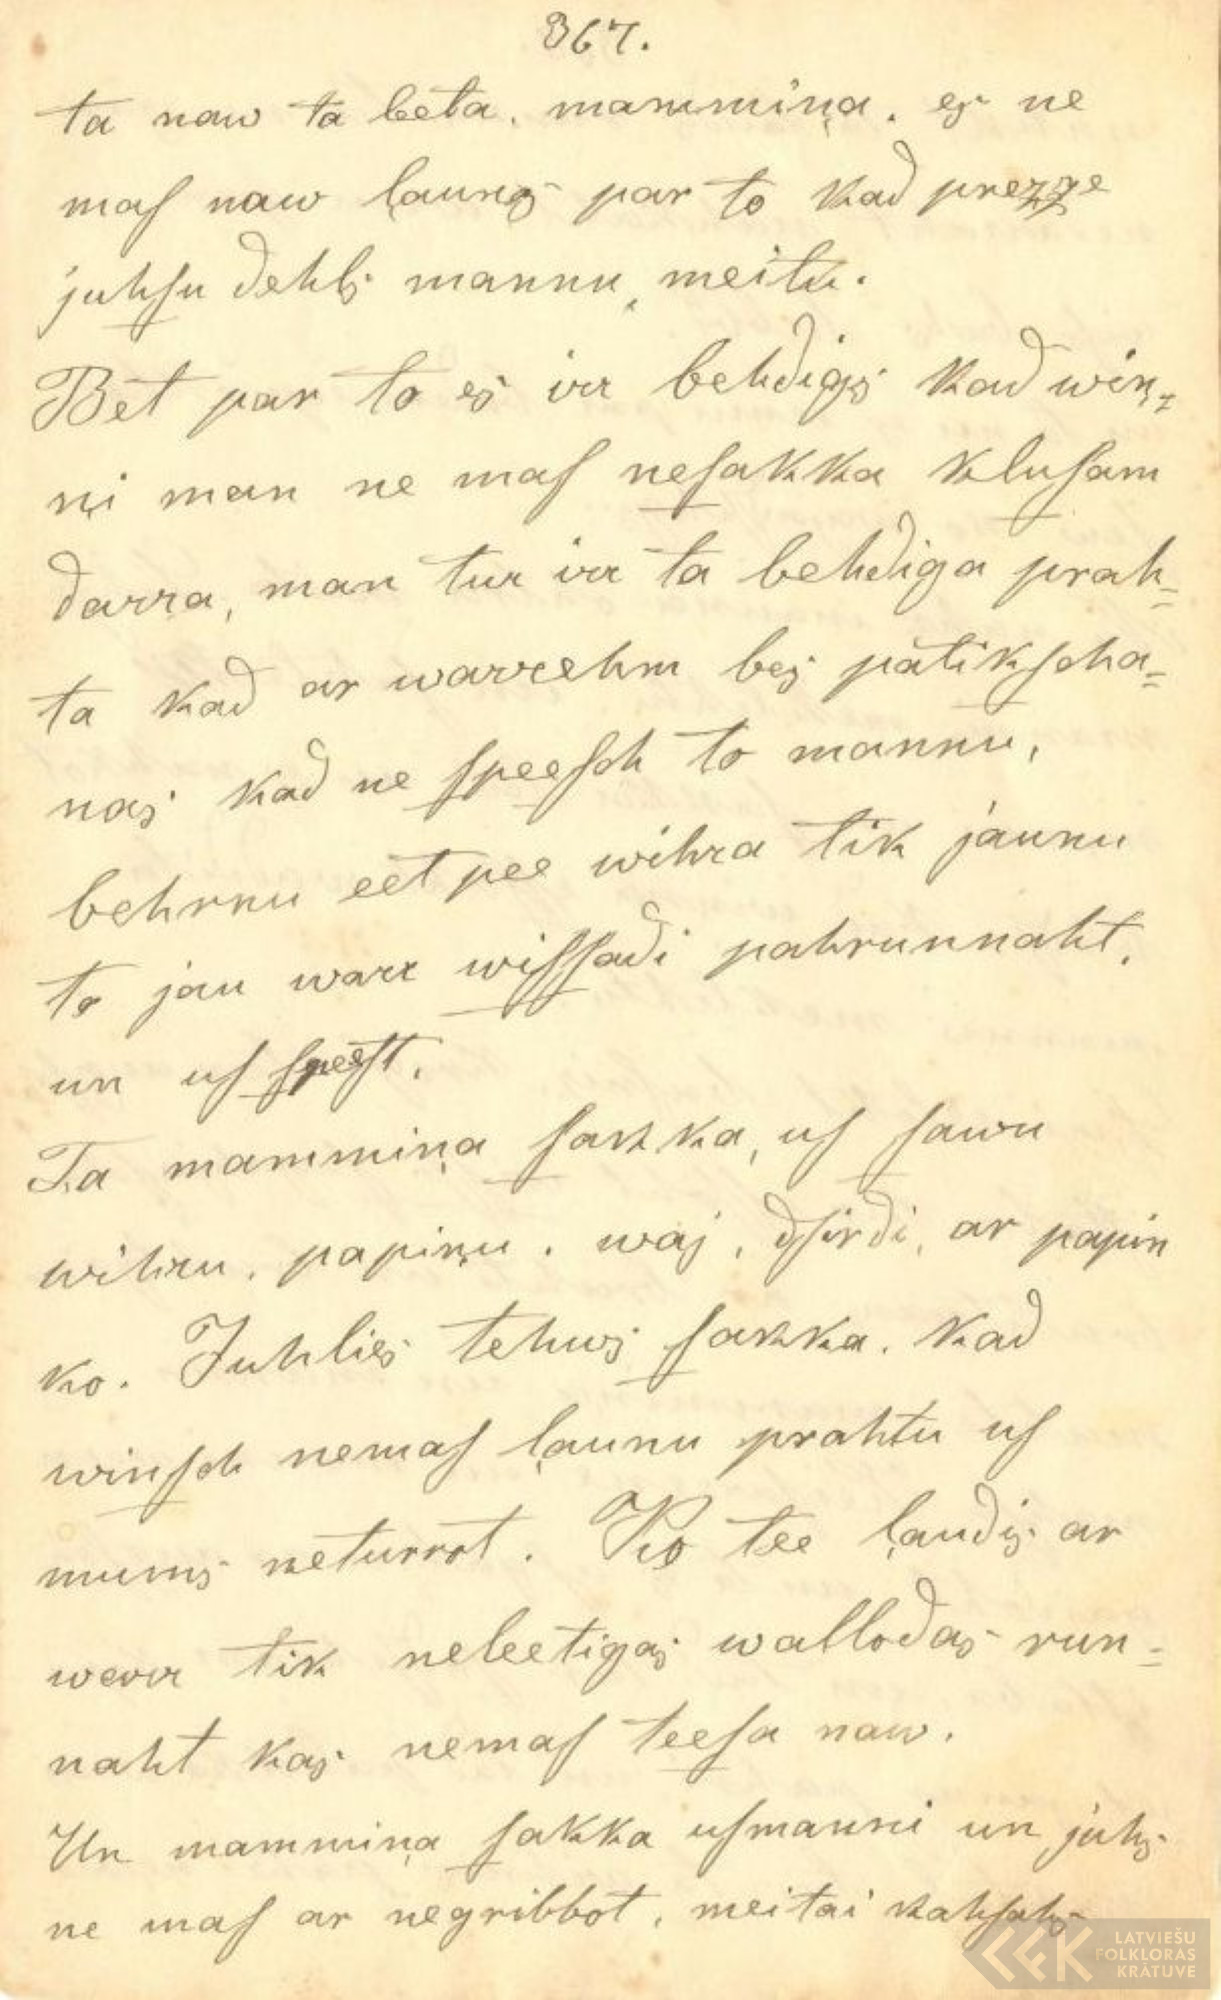 367.
ta naw ta leeta, mammiņa, es ne
maſ naw ļauns par to kad prezze
juhſu dehls mannu meitu.
Bet par to es irr behdigs kad wiņ-
ņi man ne maſ neſakka kluſam
darra, man tur irr ta behdiga prah-
ta kad ar warrehm bes patikſcha-
nas kad ne ſpeeſch to mannu,
behrnu eet pee wihra tik jaunu
to jau warr wiſſadi pahrunnaht,
un uſ ſpeeſt.
Ta mammiņa ſakka, uſ ſawu
wihru, papiņu, waj, dſirdi, ar papin
ko. Juhlies tehws ſakka, kad
winſch nemaſ ļaunu prahtu uſ
mums neturrot. Ko tee ļaudis ar
warr tik neleetigas wallodas run-
naht kas nemaſ teeſa naw.
Un mammiņa ſakka uſmanni un juhs
ne maſ ar negribbot, meitai kahſahs
LATVIEŠU
FOLKLORAS
KRĀTUVE